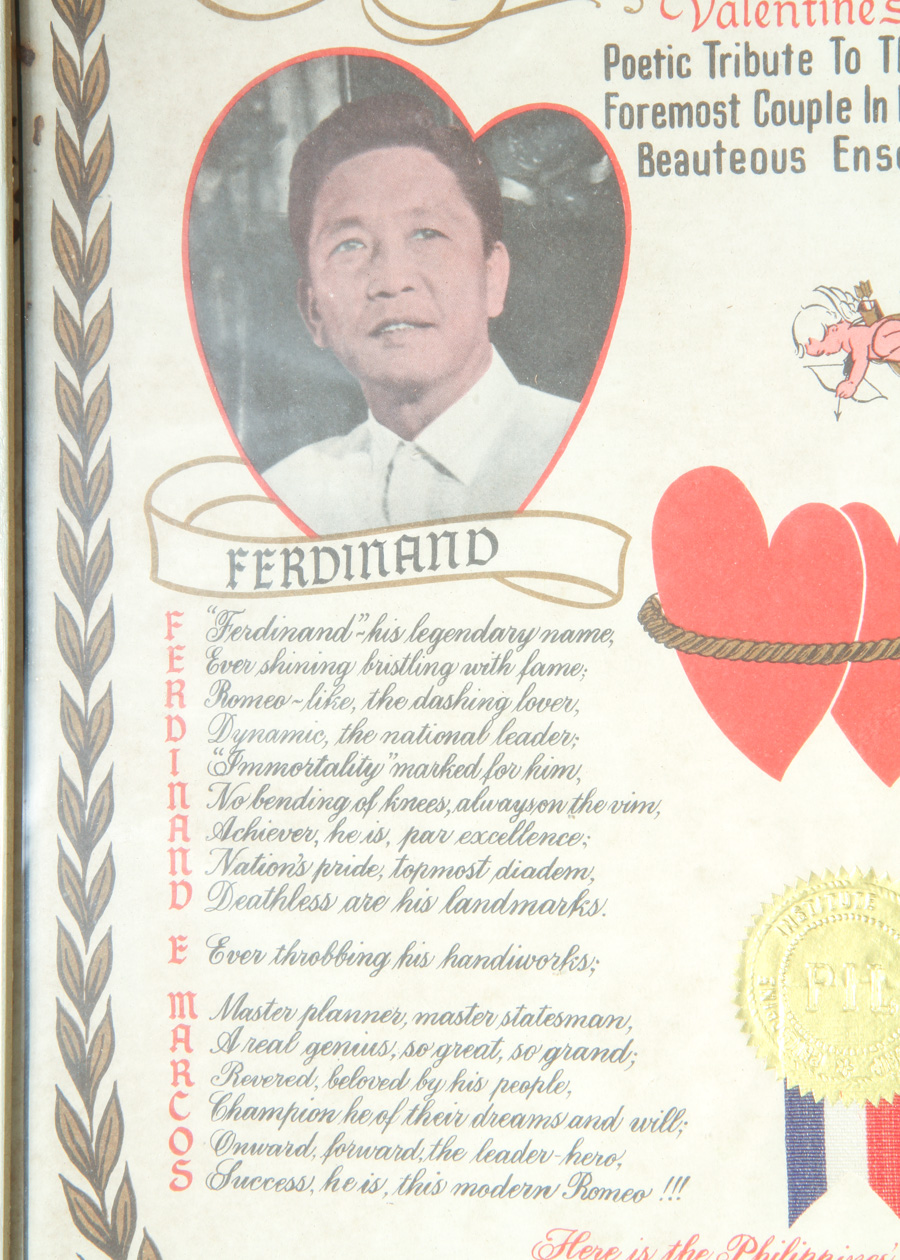 Valentine's
Poetic Tribute To
Foremost Couple In
Beauteous
FERDINAND
F "Ferdinand"~his legendary name,
E Ever shining bristling with fame;
R Romeo~like, the dashing lover,
D Dynamic, the national leader;
I "Immortality" marked for him,
N No bending of knees, always on the vim,
A Achiever, he is, par excellence;
N Nation's pride, topmost diadem,
D Deathless are his landmarks.
E Ever throbbing his handiworks;
M Master planner, master statesman,
A A real genius, so great, so grand;
R Revered, beloved by his people,
C Champion he of their dreams and will;
O Onward, forward, the leader-hero,
S Success, he is, this modern Romeo !!!
INSTITUTE
Here is the Philippines'